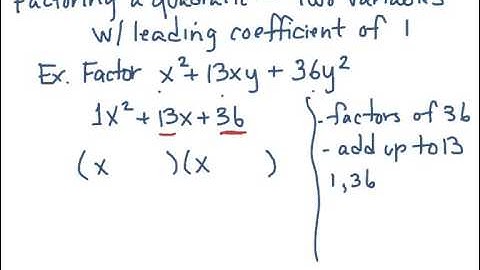 Factoring a quadratic in two variables
w/ leading coefficient of 1
Ex. Factor x²+13xy+36y²
1x²+13x+36
(x )(x )
-factors of 36
- add up to 13
1,36